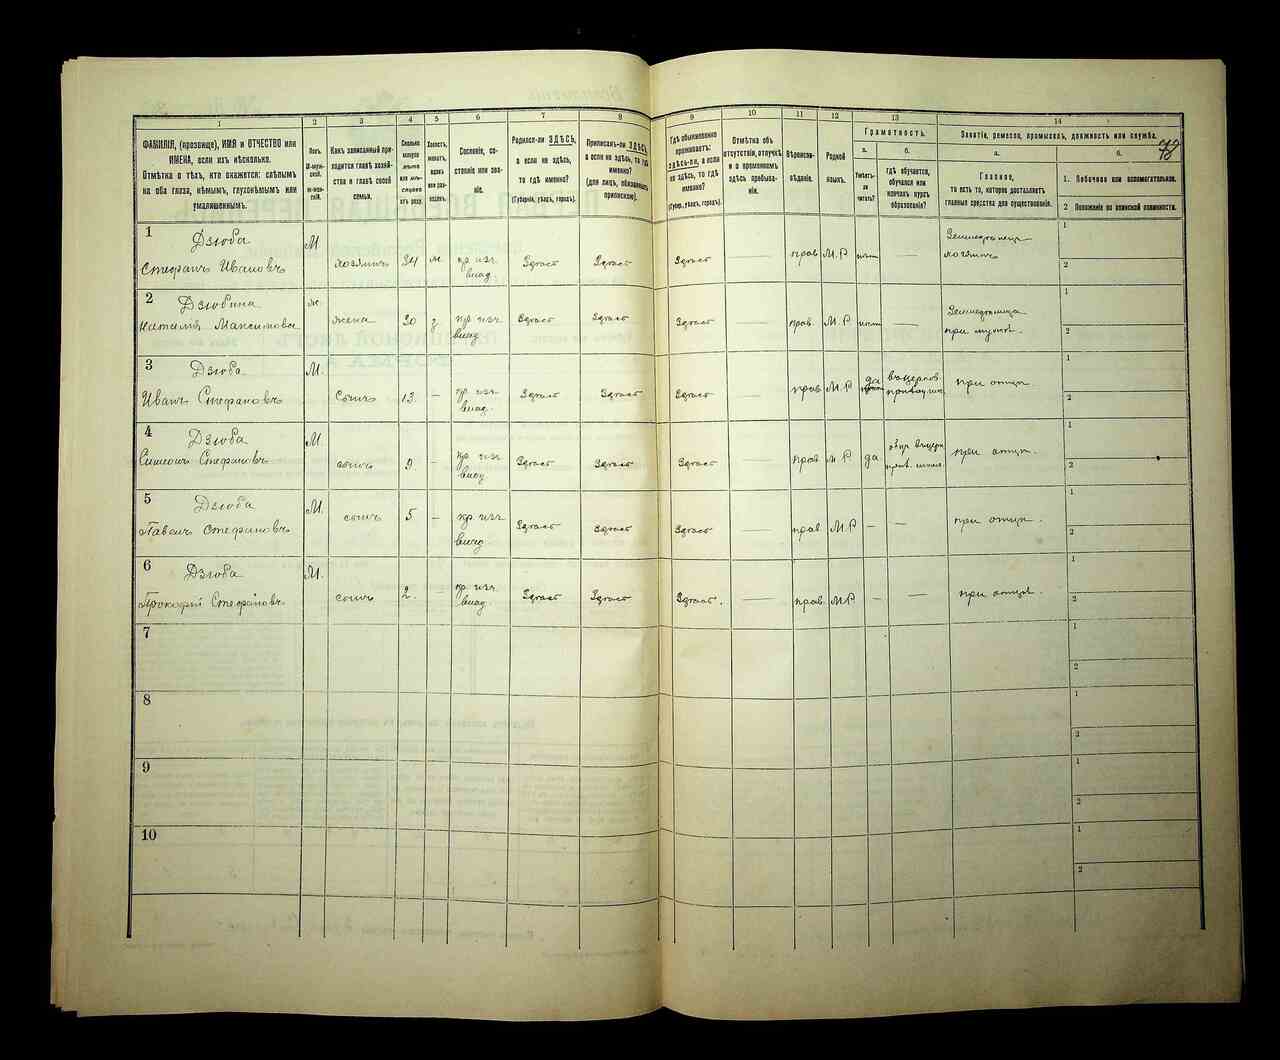 1 2 3 4 5 6 7 8 9 10 11 12 13 14
ФАМИЛІЯ, (прозвище), ИМЯ и ОТЧЕСТВО или
ИМЕНА, если ихъ нѣсколько.
Отмѣтка о тѣхъ, кто окажется: слѣпымъ
на оба глаза, нѣмымъ, глухонѣмымъ или
умалишеннымъ.
Полъ.
М-муж-
ской.
Ж-жен-
скій.
Какъ записанный при-
ходится главѣ хозяй-
ства и главѣ своей
семьи.
Сколько
минуло
лѣтъ
или мѣ-
сяцевъ
отъ роду.
Холостъ,
женатъ,
вдовъ
или раз-
веденъ.
Сословіе, со-
стояніе или зва-
ніе.
Родился-ли ЗДѢСЬ,
а если не здѣсь,
то гдѣ именно?
(Губернія, уѣздъ, городъ).
Приписанъ-ли ЗДѢСЬ,
а если не здѣсь, то гдѣ
именно?
(для лицъ, обязанныхъ
припискою).
Гдѣ обыкновенно
проживаетъ:
здѣсь-ли, а если
не здѣсь, то гдѣ
именно?
(Губерн., уѣздъ, городъ).
Отмѣтка объ
отсутствіи, отлучкѣ
и о временномъ
здѣсь пребыва-
ніи.
Вѣроиспо-
вѣданіе.
Родной
языкъ.
Грамотность.
а.
Умѣетъ-
ли
читать?
б.
гдѣ обучается,
обучался или
кончилъ курсъ
образованія?
Занятіе, ремесло, промыселъ, должность или служба.
78
а.
Главное,
то есть то, которое доставляетъ
главныя средства для существованія.
б.
1. Побочное или вспомогательное.
2 Положеніе по воинской повинности.
1 Дзюба
Стефанъ Ивановъ М хозяинъ 34 ж. кр. изъ
влад. Здѣсь Здѣсь Здѣсь — прав М.Р нѣт — Земледѣлецъ
хозяинъ 1 2
2 Дзюбина
Наталія Максимова ж. жена 30 з кр. изъ
влад. Здѣсь Здѣсь Здѣсь — прав. М.Р нѣт — Земледѣлица
при мужѣ. 1 2
3 Дзюба
Иванъ Стефановъ М. Сынъ 13. — кр. изъ
влад. Здѣсь Здѣсь Здѣсь — прав М.Р да въ церков
при отцѣ. 1 2
4 Дзюба
Симеонъ Стефановъ М. сынъ 9 — кр. изъ
влад. Здѣсь Здѣсь Здѣсь — прав М.Р да
при отцѣ. 1 2
5 Дзюба
Павелъ Стефановъ М. сынъ 5 — кр. изъ
влад. Здѣсь Здѣсь Здѣсь — прав. М.Р — — при отцѣ. 1 2
6 Дзюба
Прокофій Стефановъ М. сынъ 2. — кр. изъ
влад. Здѣсь Здѣсь Здѣсь. — прав. М.Р — — при отцѣ. 1 2
7 1 2
8 1 2
9 1 2
10 1 2